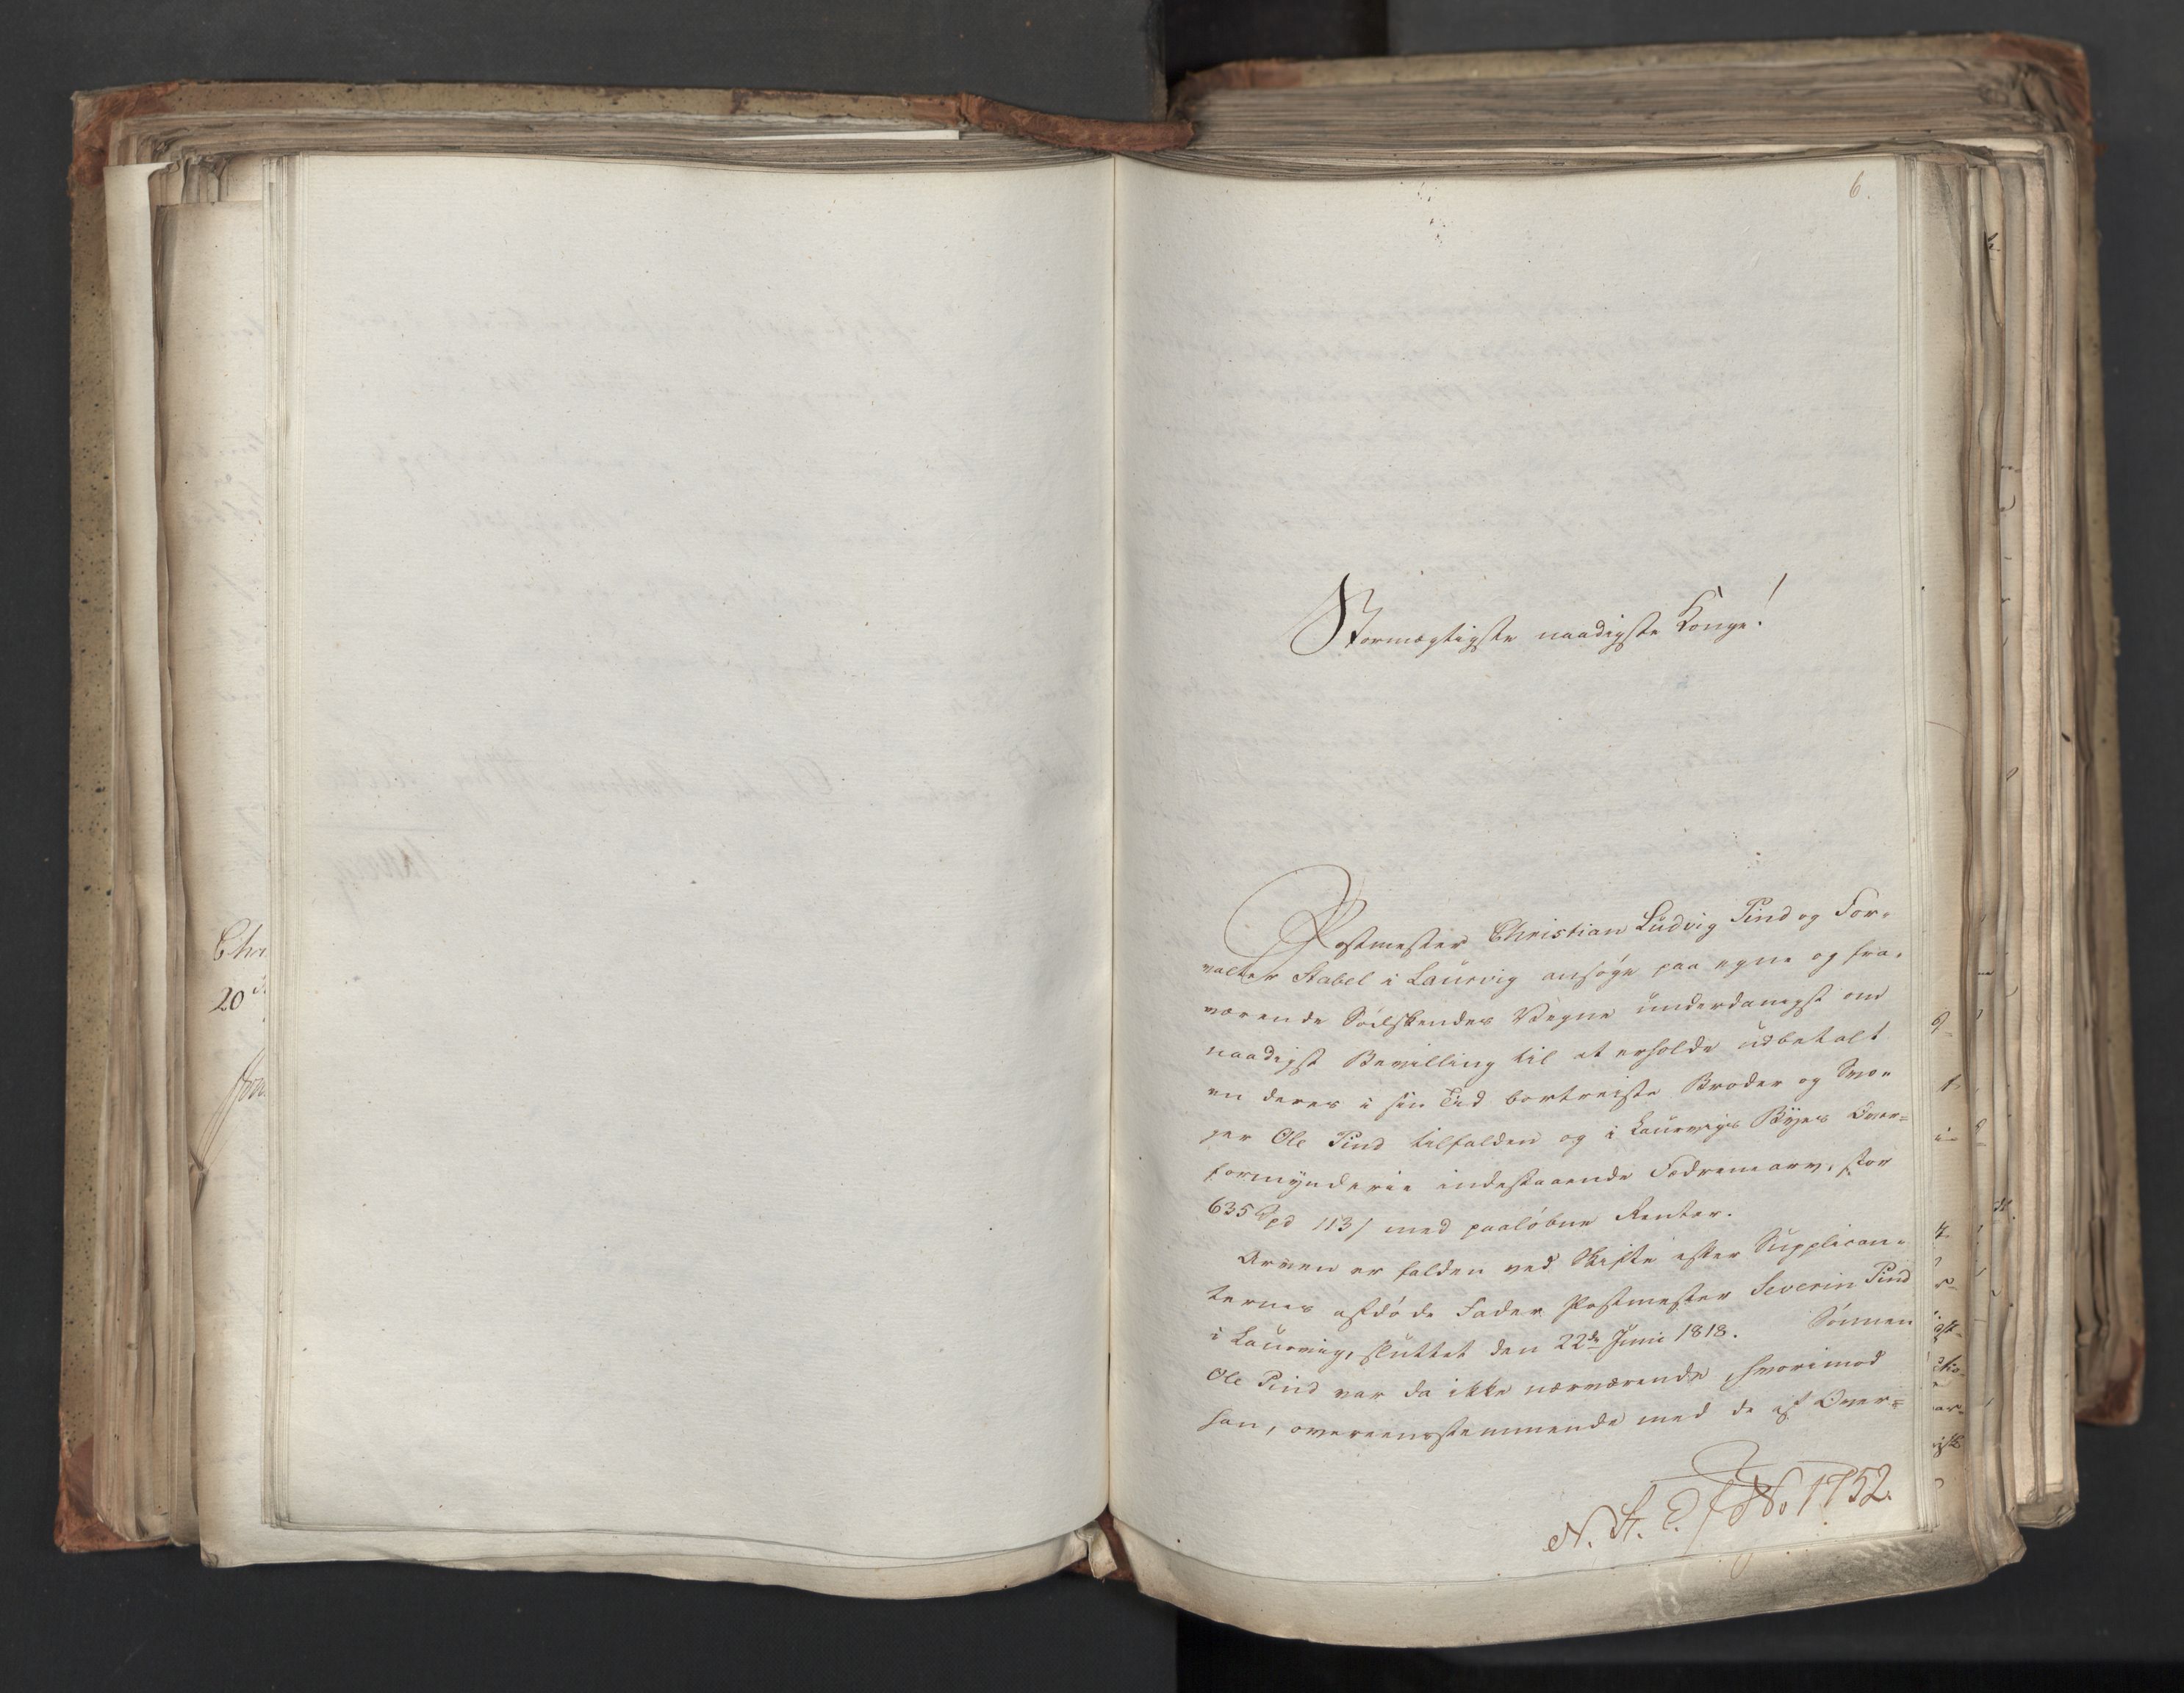 6.
Stormægtigste naadigste Konge!
Postmester Christian Ludvig Pind og For-
valter Stabel i Laurvig ansøge paa egne og fra-
værende Södskendes Vegne underdanigst om
naadigst Bevilling til at erholde udbetalt
en deres i sin Tid bortreiste Broder og Svo-
ger Ole Pind tilfalden og i Laurvigs Byes Over=
formynderie indestaaende Fædrenearv, stor
635 Spd 113/ med paaløbne Renter.
Arven er falden ved Skifte efter Supplican-
ternes afdöde Fader Postmester Severin Pind
i Laurvig, sluttet den 22de Juni 1818. Sönnen
Ole Pind var da ikke nærværende, hvorimod
han, overeensstemmende med de af Over=
N. St. E. No 1752.
Chr
20